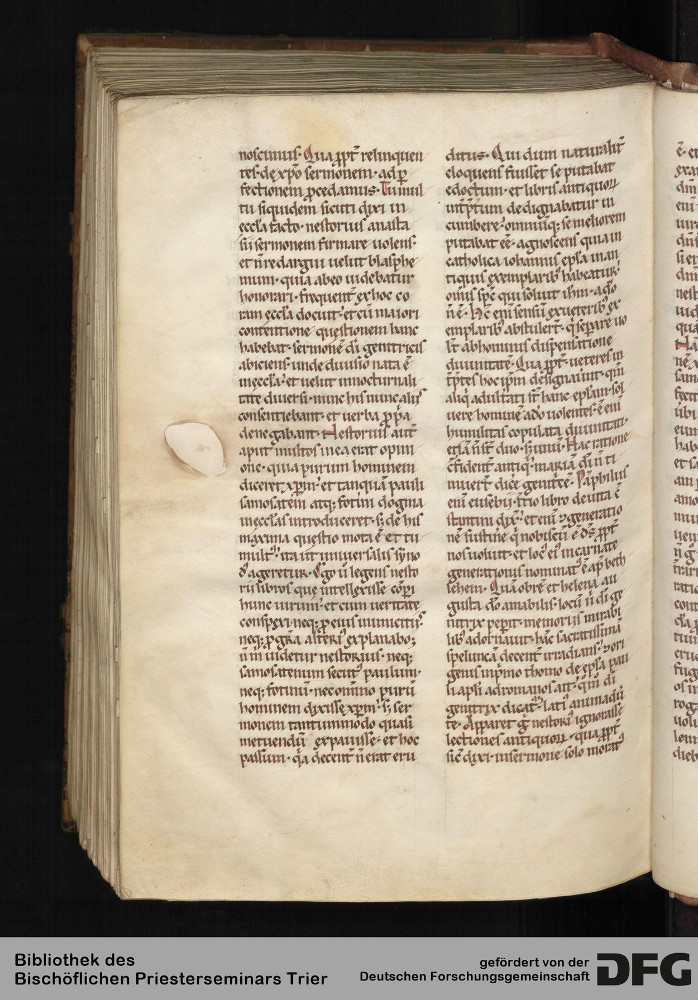 noscimus· Quap̱pt̄ relinquen
tes· de xp̄o sermonem· ad ꝑ
fectionem ꝓcedamus· Tumul
tu siquidem sicuti dixi in
eccl̄a facto· nestorius anasta
sii sermonem firmare uolens·
et n̄ redargui uelut blasphe
mum· quia ab eo uidebatur
honorari· frequent̄ ex hoc co
ram eccl̄a docuit· et cū maiori
contentione questionem hanc
habebat· sermonē di genitricis
abiciens· unde diuisio nata ē
in eccl̄a· et uelut in nocturnali
tate diuersi· nunc his nunc aliis
consentiebant· et uerba ꝓp̄a
denegabant· Nestorius aut̄
aput multos in ea erat opini
one· quia purum hominem
diceret xp̄m· et tanquā pauli
samosatem atq; fotini dogma
in eccl̄as introduceret· s; de his
maxima questio mota ē et tu
mult᷒· ita ut uniuersalis syno
d᷒ ageretur· Ego ū legens nesto
rii libros que intellexisse cōꝑi
hunc uirum· et cum ueritate
conspexi· neq; ꝓ eius inimicitiis·
neq; ꝓ gr̄a alteri᷒ explanabo;
n̄ m̄ uidetur nestorius· neq;
samosatenum secut᷒ paulum·
neq; fotinū· nec omīno purū
hominem dixisse xp̄m· s; ser
monem tantummodo quasi
metuendū expauisse· et hoc
passum· q̄a decent̄ n̄ erat eru
ditus· Qui dum naturalit̄
eloquens fuisset se putabat
edoctum· et libris antiquoꝝ
int̄ꝑtum dedignabatur in
cumbere· omniuq; se meliorem
putabat ēē· agnoscens quia in
catholica iohannis epl̄a in an
tiquis exemplarib᷒ habeatur·
omīs sp̄c qui soluit ih̄m· a do
n̄ ē· Hc̄ eni sensū ex ueterib᷒ ex
emplarib᷒ abstulert̄· q̄ separe uo
lt̄ ab hominis dispensatione
diuinitatē· Quap̱pt̄ ueteres in
t̄p̄tes hoc ip̄m designaūnt· qm̄
aliq̄ adultati st̄ hanc epl̄am· sol
uere hominē a do uolentes· ē eni
humilitas copulata diuinitati·
et iā n̄ st̄ duo· s; unū· Hac ratione
c̄fident̄ antiq̄· mariā di n̄ ti
muert̄ dice genit̄cē· Pāphilus
eni eusebii· t̄tio libro de uita c̄
stantini dix̄· et eni 7 generatio
nē sustine q̄ nobiscū ē d̄s ꝓpt̄
nos uoluit· et loc᷒ ei᷒ incarnate
generationis nominat᷒ ē ap̄ beth
lehem· Quā obrē et helena au
gusta do amabilis· locū n̄ di ge
nitrix peꝑit· memoriis mirabi
lib᷒ adornauit· hāc sacratissimā
speluncā decent̄ irradians· 7 ori
genis in p̄mo thomo de epl̄a pau
li apl̄i ad romanos ait· qm̄ di
genitrix dicat̄· lati᷒ animadū
t̄e· Apparet ḡ nestoriū ignorasse
lectiones antiquoꝝ· quap̱pt̄
sic̄ dixi· in sermone solo morat᷒
Bibliothek des
Bischöflichen Priesterseminars Trier
gefördert von der
Deutschen Forschungsgemeinschaft
DFG